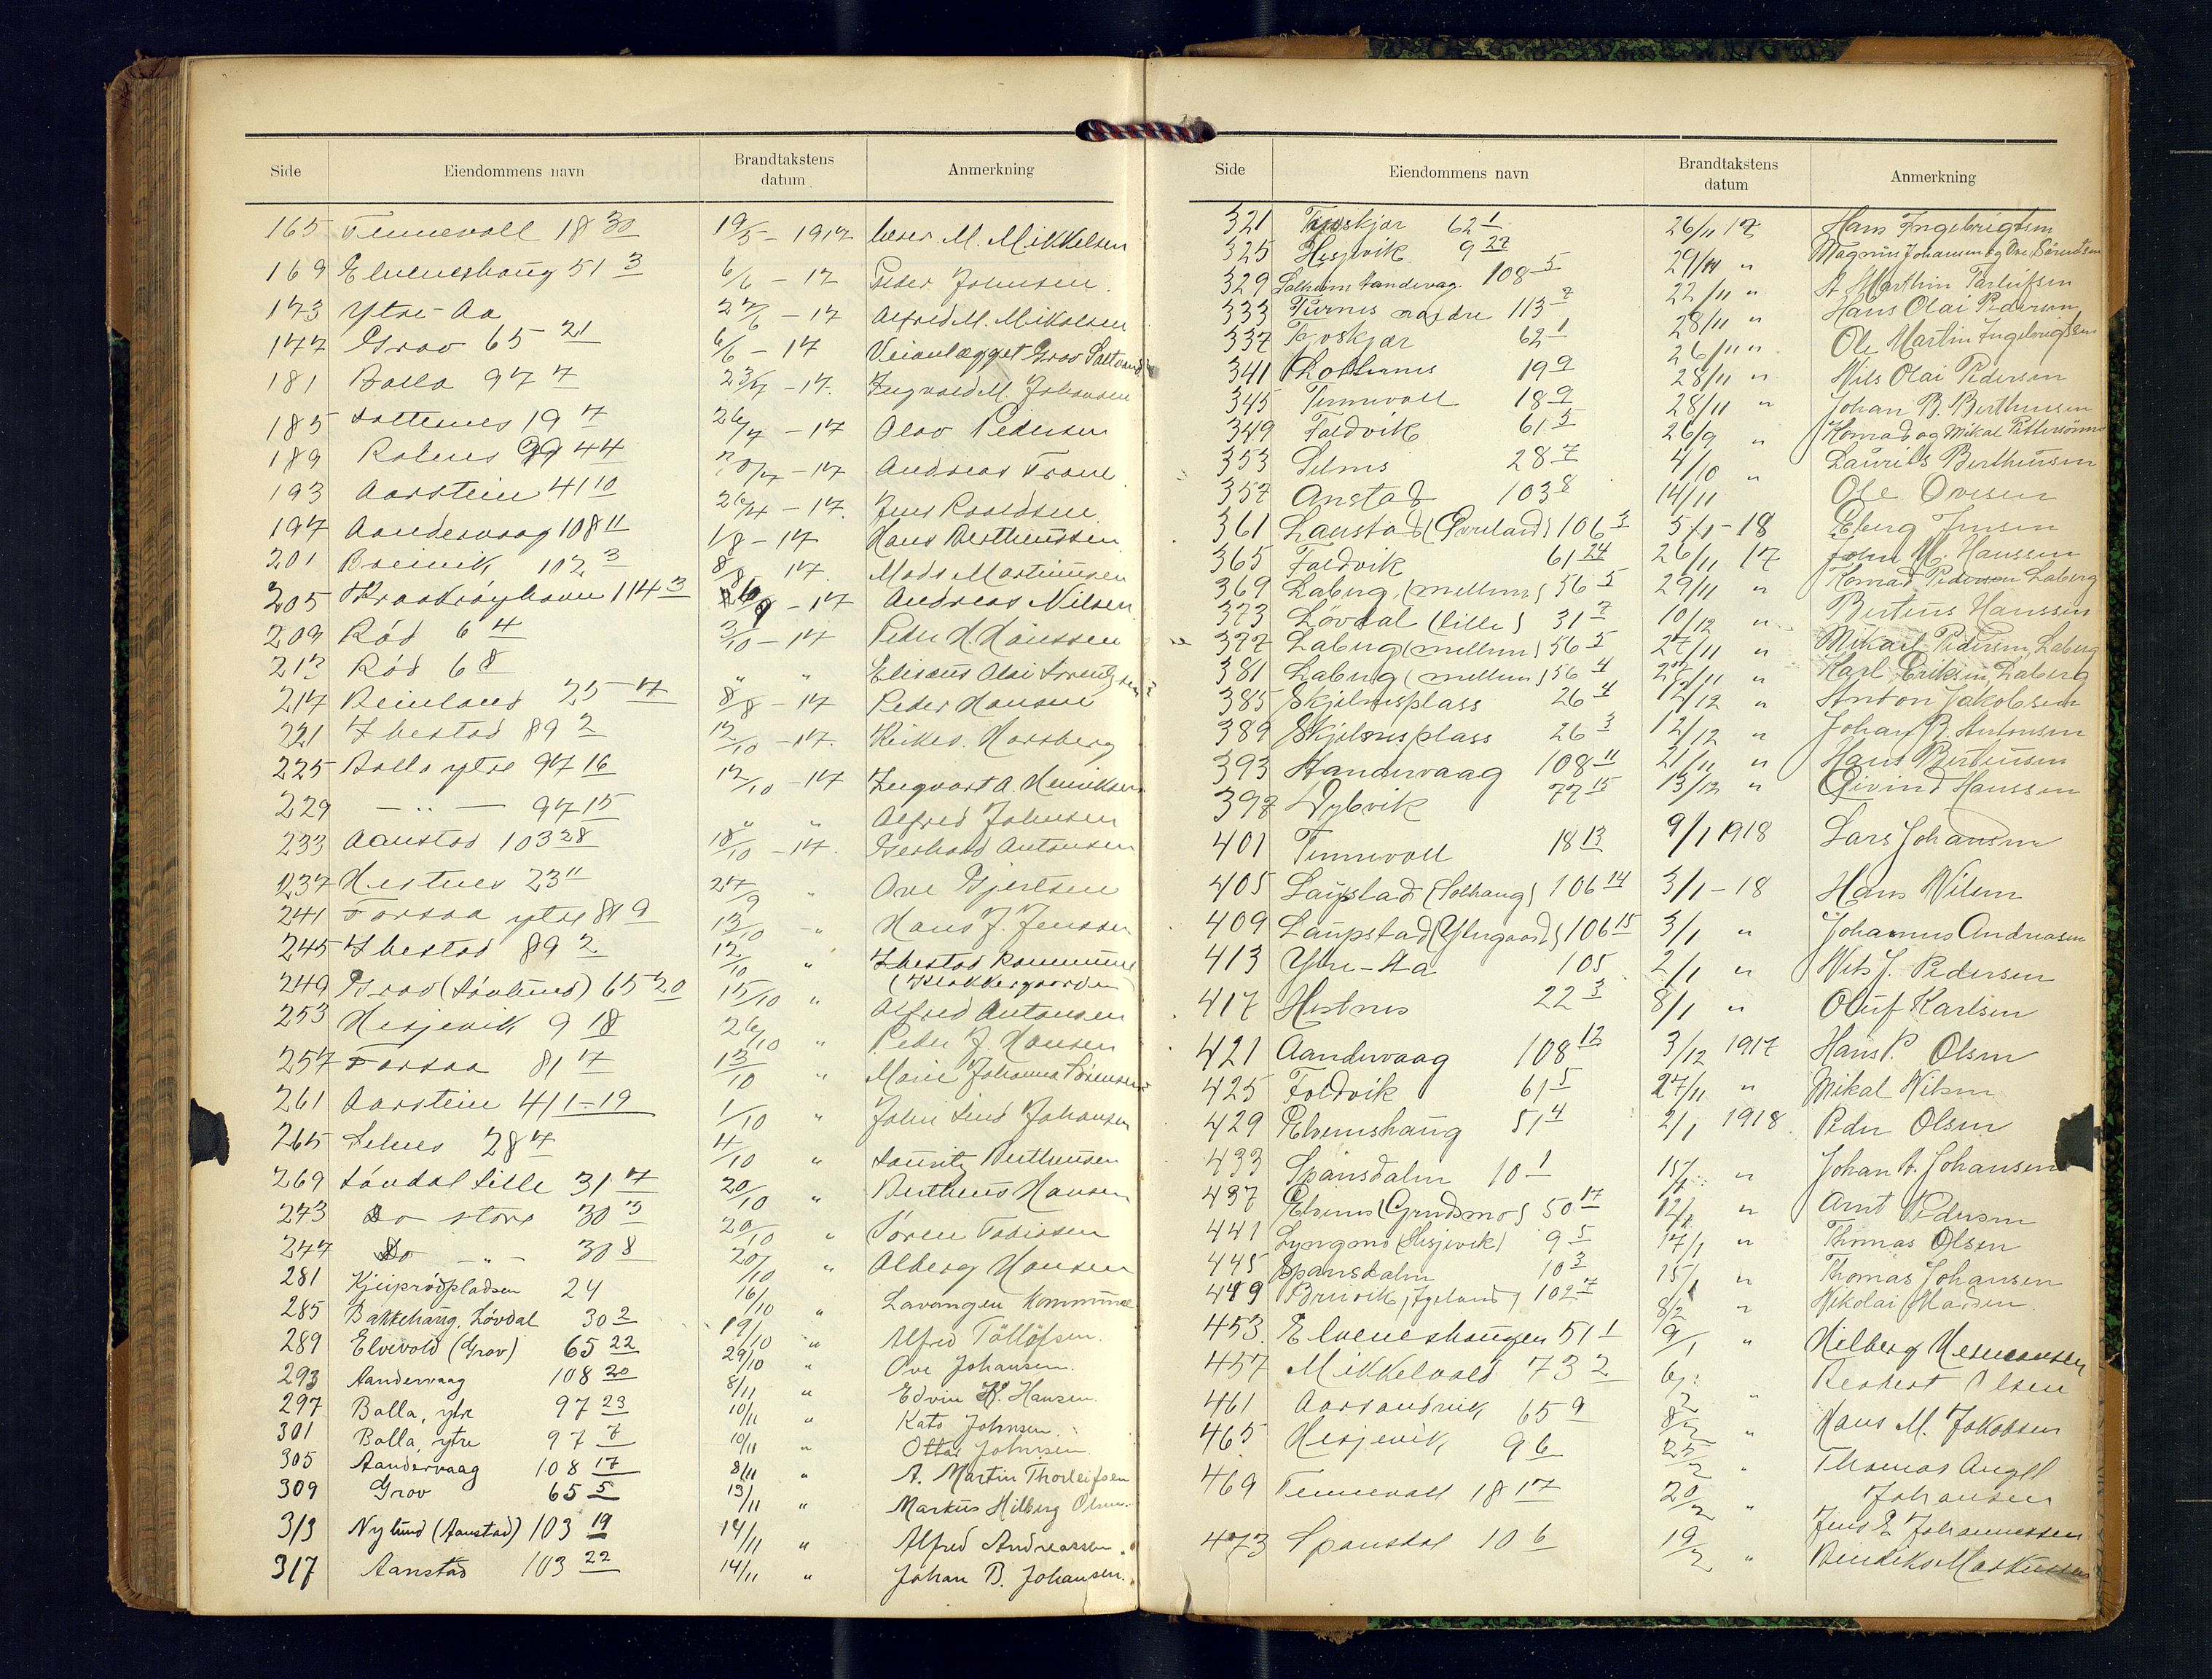 Side Eiendommens navn Brandtakstens datum Anmerkning
165 Tennevoll 18 30 19/5 - 1917 M. Mikkelsen
169 Elveneshaug 51 3 6/6 - 17 Peder Johnsen.
173 Ytre-Aa 27/6 - 17 Alfred M. Mikalsen
177 Grov 65 21 6/6 - 17 Veianlægget Grov
181 Bolla 97 7 23/7 - 17. Ingvald M. Johansen
185 Lottenes 19 7 26/7 - 17 Olav Pedersen
189 Rolnes 99 44 - 17 Andreas Trane.
193 Aarstein 41 10 - 17. Jens Roaldsen
197 Aandervaag 108 11 1/8 - 17 Hans Bertheussen
201 Breivik 102 3 8/8 17. Mads Martinussen
205 114 3 26/9 - 17 Andreas Nilsen
209 Rød 6 4 3/10 - 17 Peder H Hanssen
213 Rød 6 8 " " Elisæus Olai Lorentzsen
217 Beinland 25 7 8/8 - 17 Peder Hansen
221 Ibestad 89 2 12/10 - 17. Harsberg
225 Bolla ytre 97 16 12/10 - 17 Ingvart A. Henriksen
229 — " — 97 15 " " Alfred Johnsen
233 Aanstad 103 28 18/10 - 17. Gerhard Antonsen
237 Hestnes 23 11 27/9 " Ove Gjertsen
241 Forsaa ytre 81 9 13/10 - " Hans J. Jenssen
245 Ibestad 89 2 12/10 " Ibestad kommune
(Klokkergaarden)
249 Grov (Løvlund) 65 20 15/10 " Alfred Antonsen
253 Hesjevik 9 18 26/10 " Peder J. Hansen
257 Forsaa 81 7 13/10 " Marie Johanna Sørensen
261 Aarstein 41 1-19 1/10 " John Lind Johansen
265 Selnes 28 4 4/10 " Lauritz Bertheusen
269 Løvdal Lille 31 7 20/10 " Bertheus Hansen
273 Do store 30 3 20/10 " Søren Tobiasen
277 Do - " - 30 8 20/10 " Alberg Hansen
281 Kjeiprødpladsen 24 16/10 " Lavangen Kommune
285 Bakkehaug, Løvdal 30 2 19/10 " Alfred Tøllefsen.
289 Elvevold (Grov) 65 22 29/10 " Ove Johansen.
293 Aandervaag 108 20 8/11 " Edvin H. Hansen.
297 Bolla, ytre 97 23 10/11 " Kato Johnsen.
301 Bolla, ytre 97 7 10/11 " Ottar Johnsen
305 Aandervaag 108 17 8/11 " A. Martin Thorleifsen
309 Grov 65 5 13/11 " Markus Hilberg Olsen.
313 Nylund (Aanstad) 103 19 14/11 " Alfred Andreassen.
317 Aanstad 103 22 14/11 " Johan B. Johansen.
Side Eiendommens navn Brandtakstens datum Anmerkning
321 62 1 26/11 17 Hans Ingebrigtsen
325 Hesjevik 9 22 29/11 " Magnus Johansen og Ove Sørensen
329 Solheim Aandervag. 108 5 22/11 " A. Marthin Tarleifsen
333 nordre 113 2 28/11 " Hans Olai Pedersen
337 62 1 26/11 " Ole Martin Ingebrigtsen
341 19 9 28/11 " Nils Olai Pedersen
345 Tennevoll 18 9 28/11 " Johan B. Bertheusen
349 Foldvik 61 5 26/9 " Konrad og Mikal
353 Selnes 28 7 4/10 " Laurits Bertheusen
357 Anstad 103 8 14/11 Ole Ovesen
361 106 3 5/1 - 18 Eberg Jensen
365 Foldvik 61 24 26/11 17 John M. Hanssen
369 Laberg (mellem) 56 5 29/11 " Konrad Pedersen Laberg
373 Løvdal (lille) 31 7 10/12 " Berteus Hanssen
377 Laberg (mellem) 56 5 27/11 " Mikael Pedersen Laberg
381 Laberg (mellem) 56 4 27/11 " Karl Eriksen Laberg
385 Skjelnesplass 26 4 12/12 " Anton Jakobsen
389 Skjelnesplass 26 3 12/12 " Johan B. Antonsen
393 Aandervaag 108 11 21/11 " Hans Berteusen
397 Dybvik 77 15 13/12 " Eivind Hanssen
401 Tennevoll 18 13 9/1 1918 Lars Johansen
405 Laupstad (Solhaug) 106 14 3/1 - 18 Hans Nilsen
409 Laupstad (Yttergaard) 106 15 3/1 " Johannes Andreasen
413 Ytre-Aa 105 2/1 " Nils J. Pedersen
417 Hestnes 22 3 8/1 " Oluf Karlsen
421 Aandervaag 108 12 3/12 1917 Hans P. Olsen
425 Foldvik 61 5 27/11 " Mikal Nilsen
429 Elveneshaug 51 4 2/1 1918 Peder Olsen
433 Spansdalen 10 1 15/1 " Johan A. Johansen
437 Elvenes (Grundsmo) 50 17 12/1 " Arnt Pedersen
441 Lyngmo (Hesjevik) 9 5 17/1 " Thomas Olsen
445 Spansdalen 10 3 15/1 " Thomas Johansen
449 Breivik, 102 7 8/2 " Nikolai Madsen.
453. Elveneshaugen 51 1 9/1 " Hilberg Hermansen
457 Mikkelvold 73 2 6/2 " Olsen
461 Aarsandvik 65 9 8/2 " Hans M. Jakobsen
465 Hesjevik 9 6 25/2 " Thomas Angel
Johansen
469 Tennevoll 18 17 20/2 " Jens E Johannessen
473 Spansdal 10 6 19/2 " Markussen